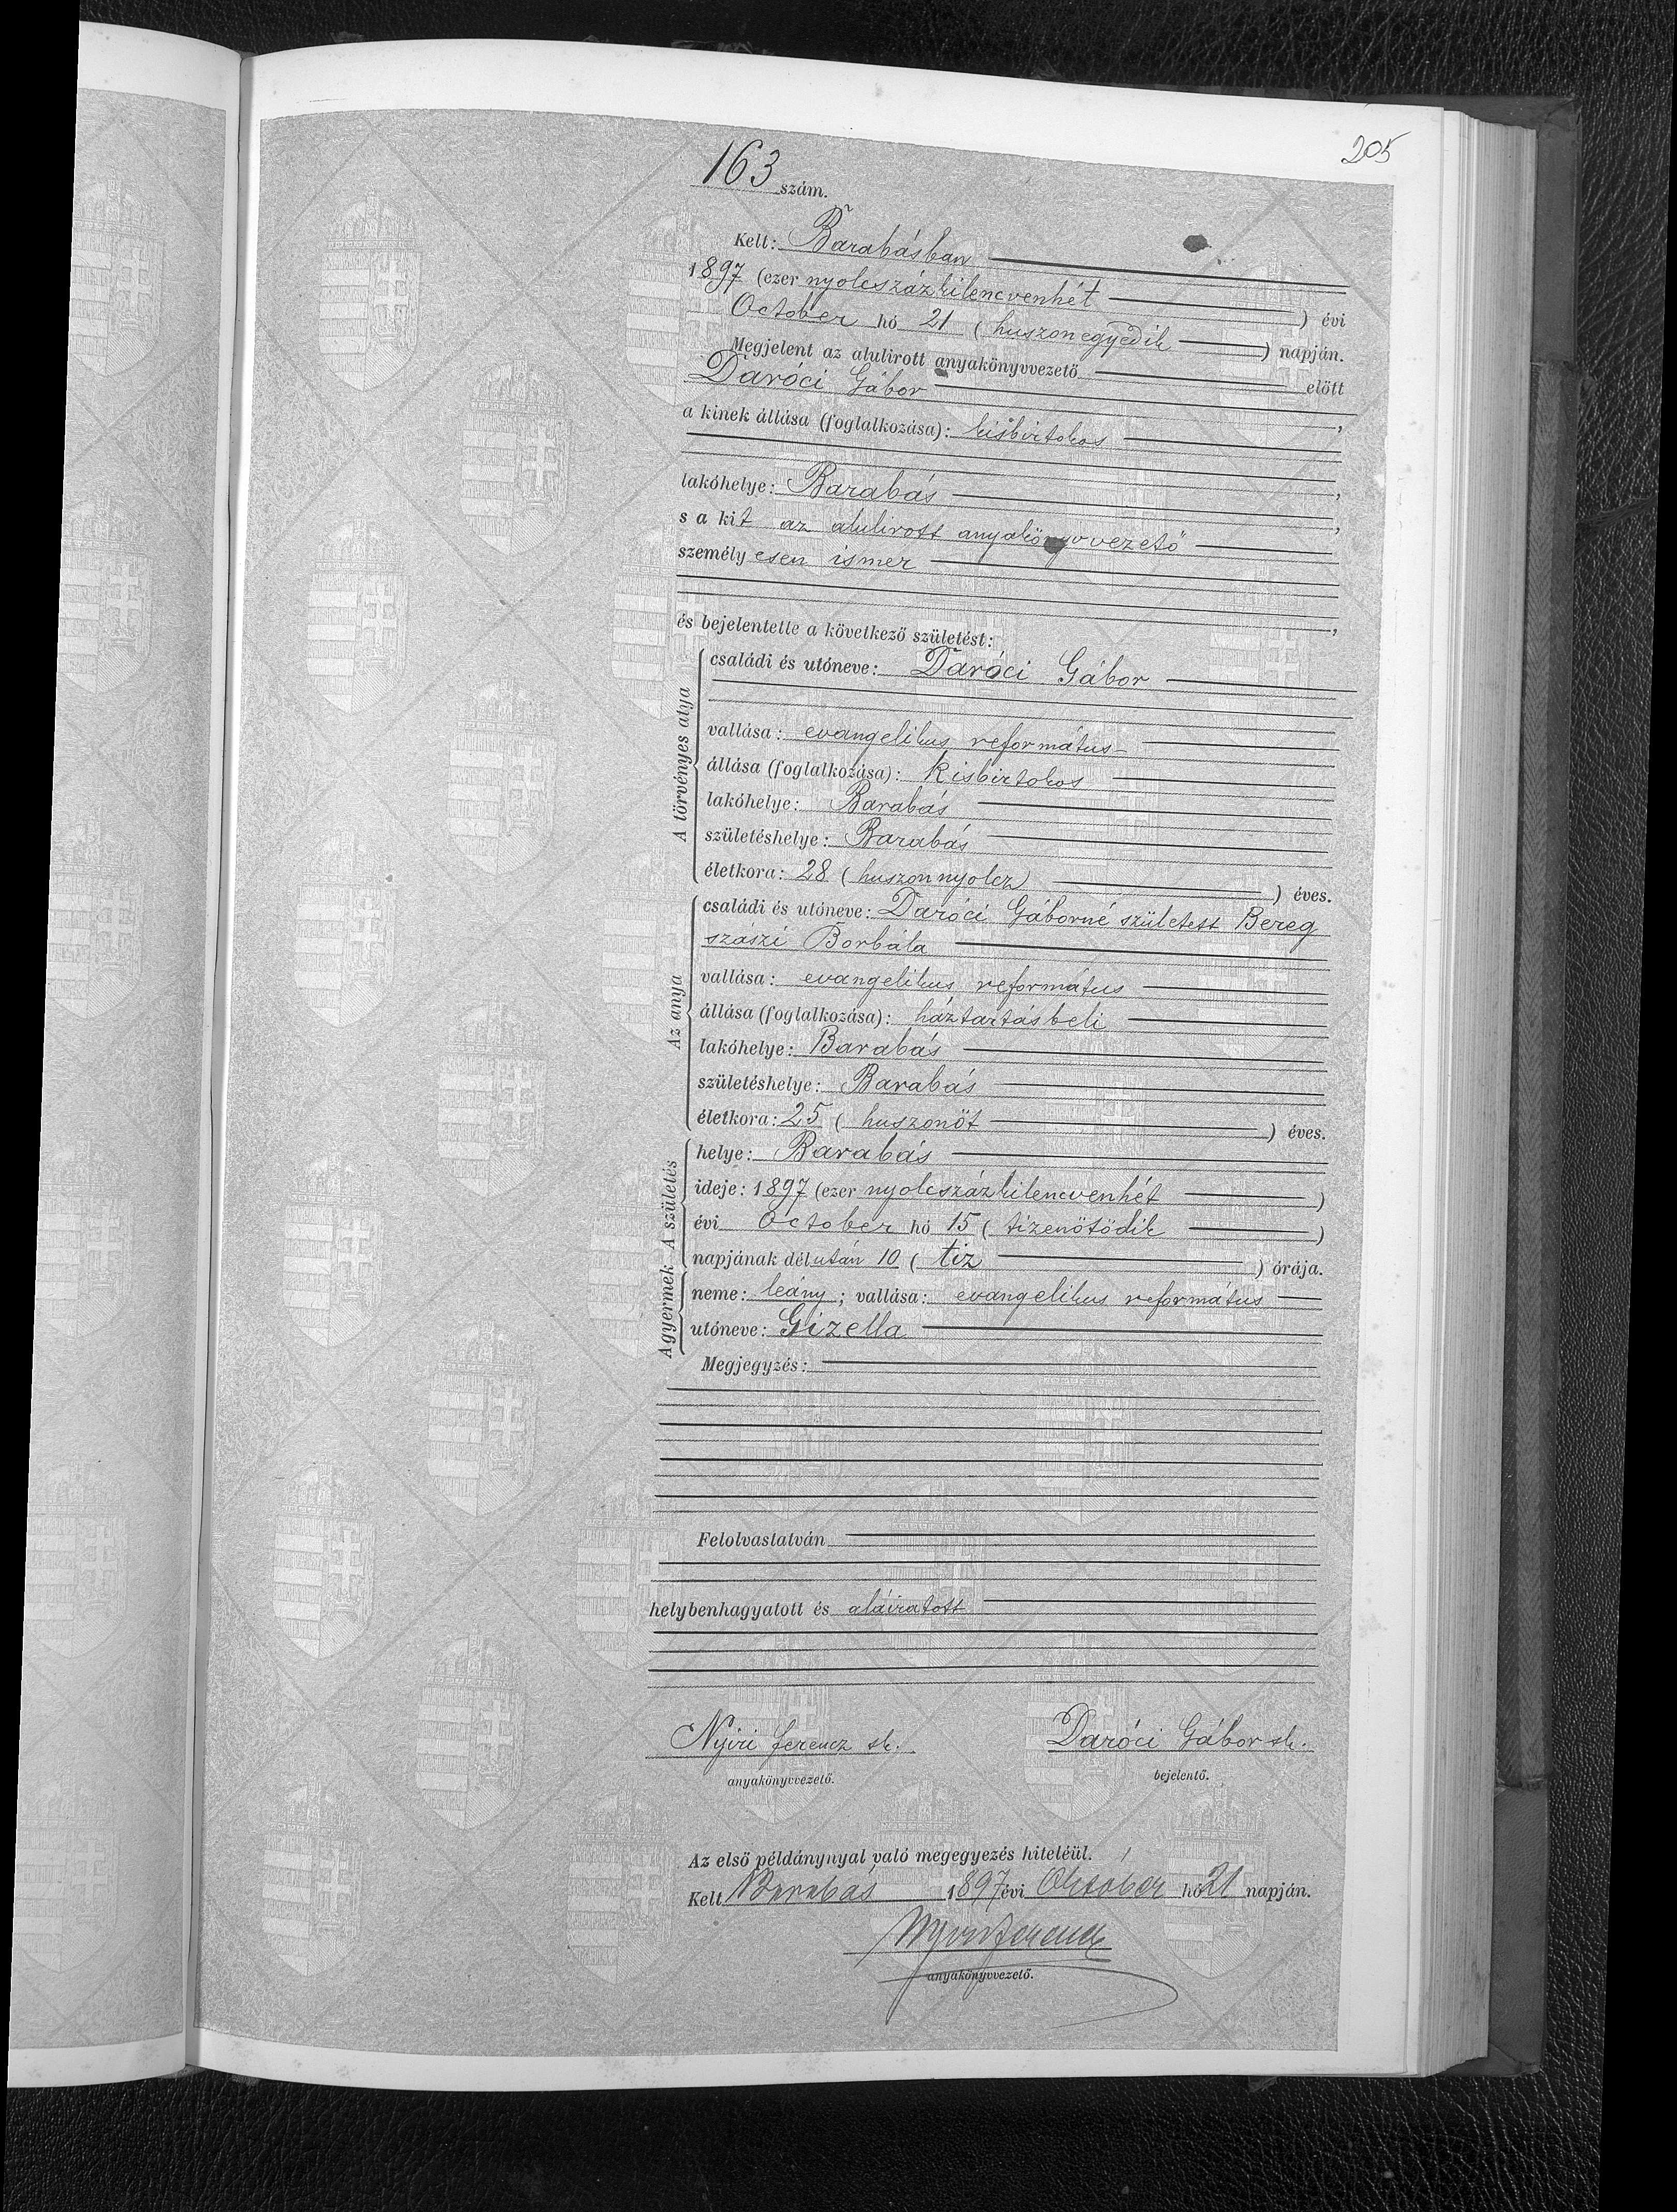 205
163 szám.
Kelt: Barabásban
1897 (ezer nyolcszázkilencvenhét) évi
October hó 21 (huszonegyedik) napján.
Megjelent az alulirott anyakönyvvezető előtt
Daróci Gábor,
a kinek állása (foglalkozása): kisbirtokos
lakóhelye: Barabás,
s a kit az alulirott anyakönyvvezető
személyesen ismer
és bejelentette a következő születést:
A törvényes atya
családi és utóneve: Daróci Gábor
vallása: evangelikus református
állása (foglalkozása): kisbirtokos
lakóhelye: Barabás
születéshelye: Barabás
életkora: 28 (huszonnyolcz) éves.
Az anya
családi és utóneve: Daróci Gáborné született Bereg
szászi Borbála
vallása: evangelikus református
állása (foglalkozása): háztartásbeli
lakóhelye: Barabás
születéshelye: Barabás
életkora: 25 (huszonöt) éves.
A születés
helye: Barabás
ideje: 1897 (ezer nyolcszázkilencvenhét)
évi October hó 15 (tizenötödik)
napjának délután 10 (tiz) órája.
A gyermek
neme: leány; vallása: evangelikus református
utóneve: Gizella
Megjegyzés:
Felolvastatván
helybenhagyatott és aláiratott
Nyiri Ferencz sk. Daróci Gábor sk.
anyakönyvvezető. bejelentő.
Az első példánynyal való megegyezés hiteléül.
Kelt Barabás 1897 évi Október hó 21 napján.
Nyiri Ferencz
anyakönyvvezető.